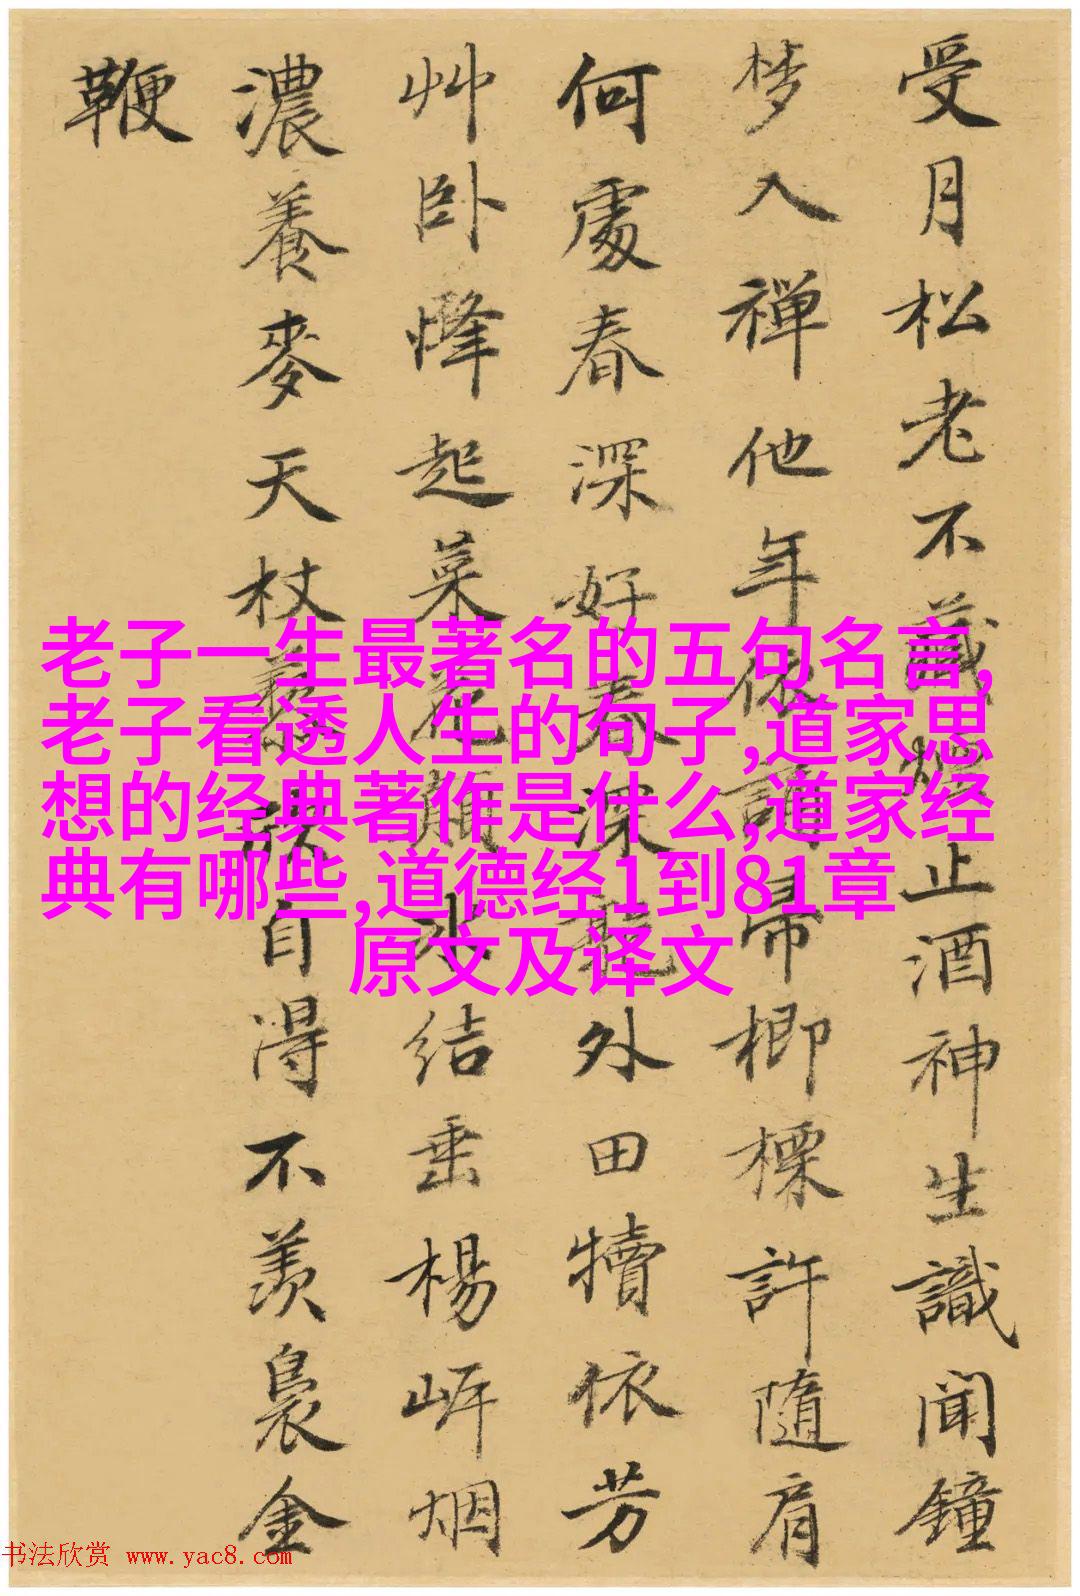 受月松老不蔵烟止酒神生識聞鐘
梦入禅他年依請帰楖標許隨肩
何處春深好春深郭外田犢依芳
艸卧烽起菜花顛水结垂楊岍烟
濃養麥天杖藜放自淂不羨裊金
鞭
老子一生最著名的五句名言,
老子看透人生的句子,道家思
想的经典著作是什么,道家经
典有哪些,道德经1到81章
原文及译文
书法欣赏 www.yac8.com